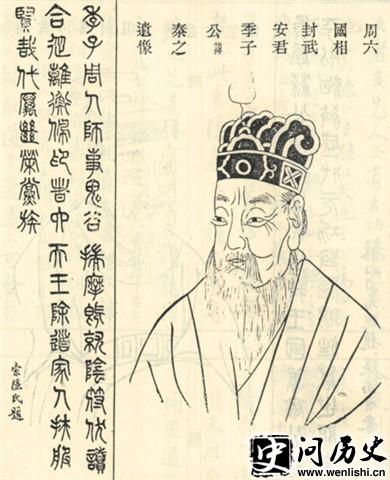 周六
國相
封武
安君
季子
公諱
秦之
遺像
季子周人師事鬼谷揣摩既就陰符伏讀
合從離衡佩印者六天王除道家人扶服
賢哉代厲繼榮黨族
索隱氏題
史 问历史
www.wenlishi.cn